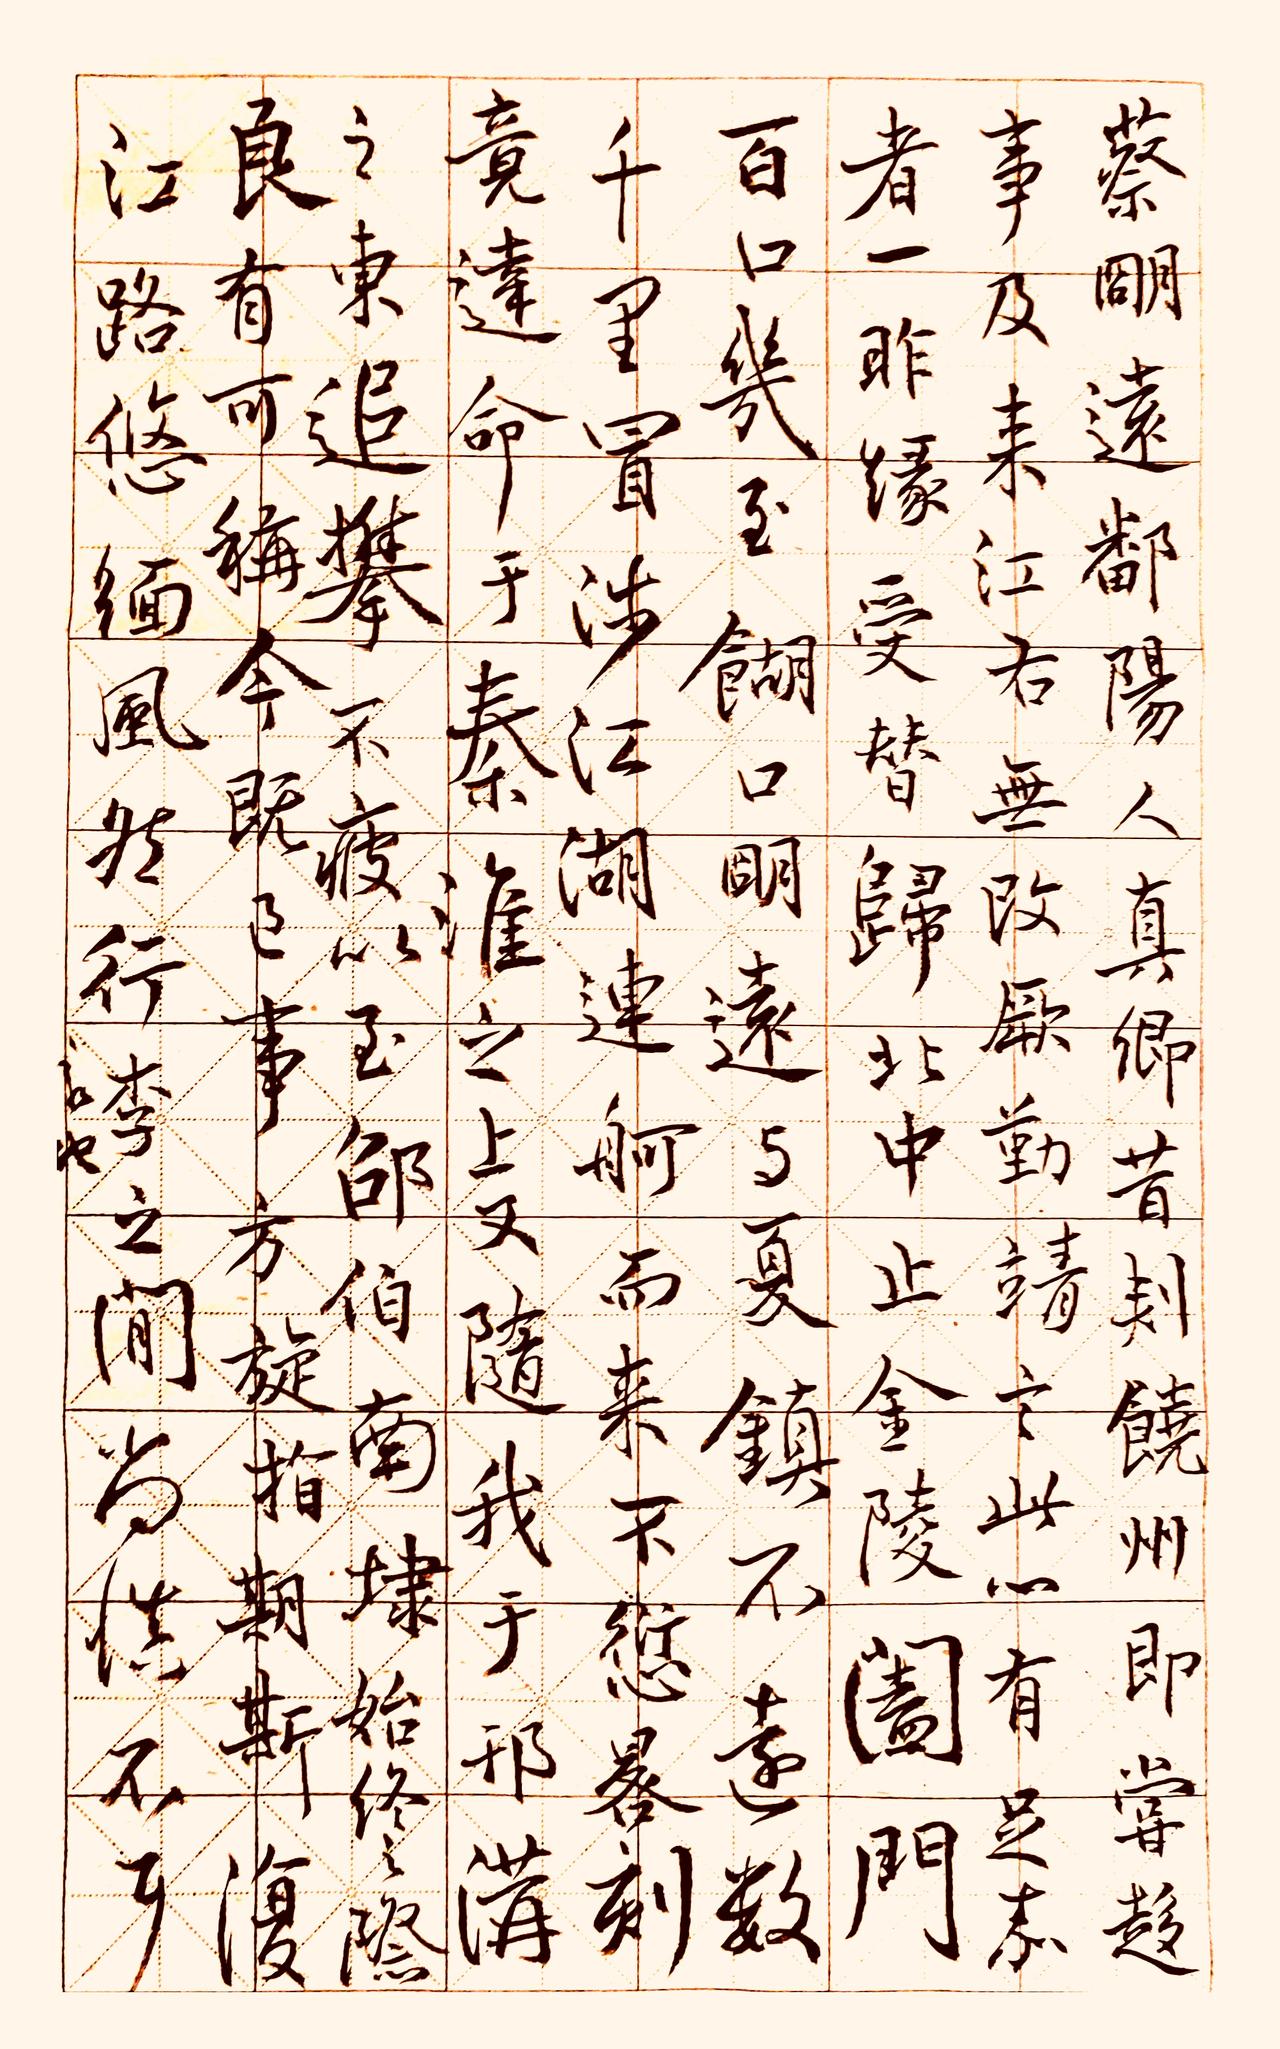 蔡明遠鄱陽人真卿昔刾饒州即嘗趍
事及来江右無改厥勤靖言此心有足嘉
者一昨緣受替歸北中止金陵闔門
百口幾至餬口明遠与夏鎮不遠数
千里冒涉江湖連舸而来不愆晷刻
竟達命于秦淮之上又隨我于邗溝
之東追攀不疲以至邵伯南埭始終之際
良有可稱今既已事方旋指期斯復
江路悠緬風然行李之間尚慎不才